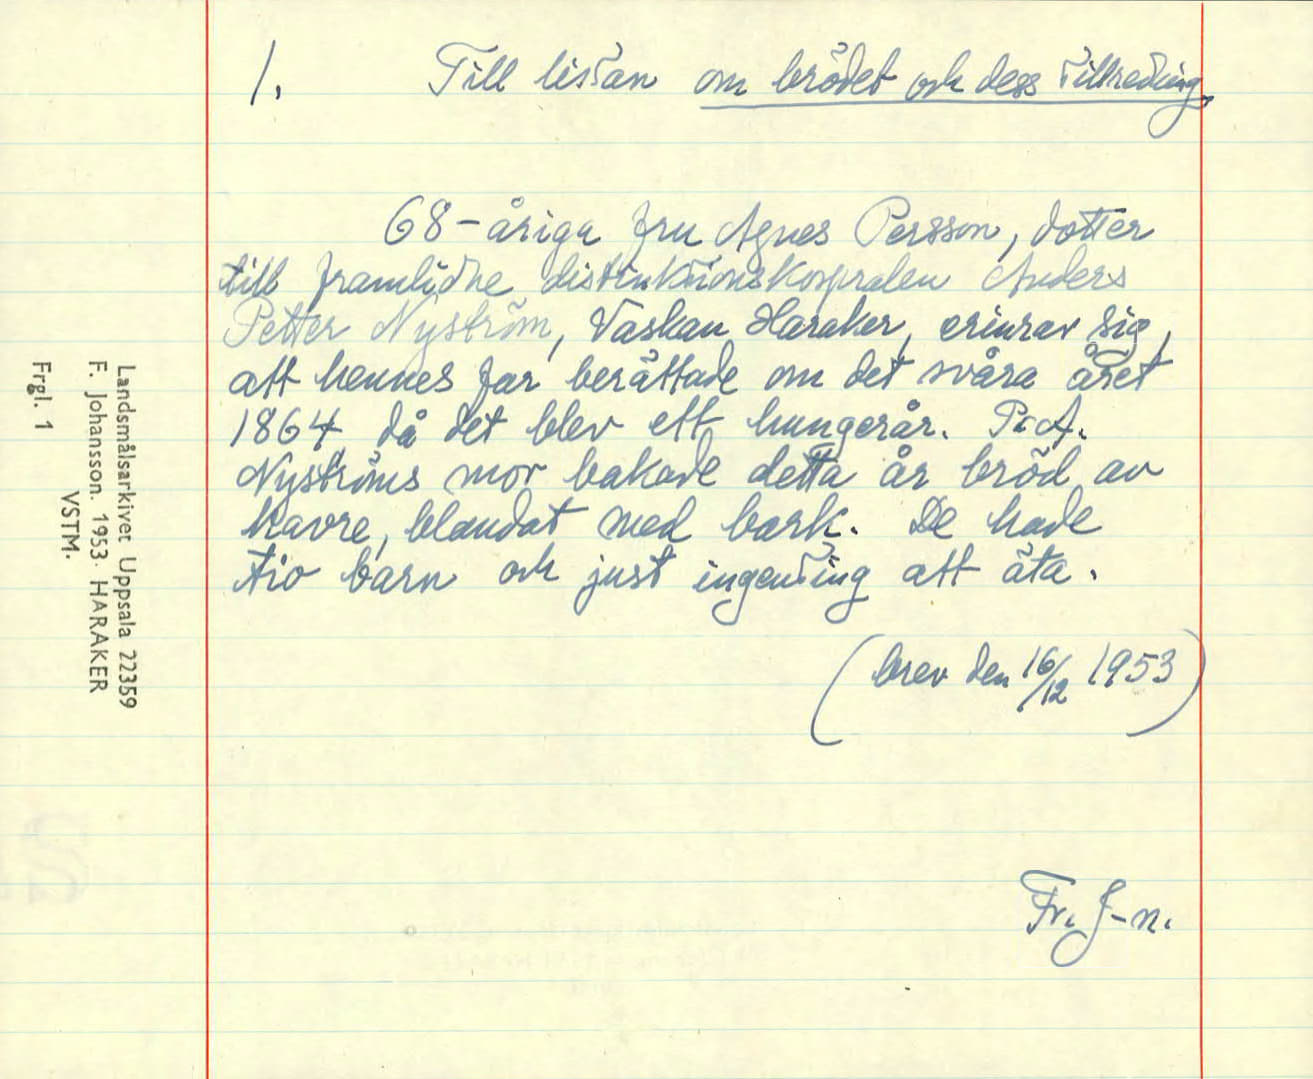 1. Till listan om brödet och dess tillredning.
68-åriga fru Agnes Persson, dotter
till framlidne distinktionskorpralen Anders
Petter Nyström, Vaskan Haraker, erinrar sig,
att hennes far berättade om det svåra året
1864 då det blev ett hungerår. P.A.
Nyströms mor bakade detta år bröd av
havre, blandat med bark. De hade
tio barn och just ingenting att äta.
(brev den 16/12 1953)
Fr. J-n.
Landsmålsarkivet Uppsala 22359
F. Johansson. 1953. HARAKER
VSTM.
Frgl. 1